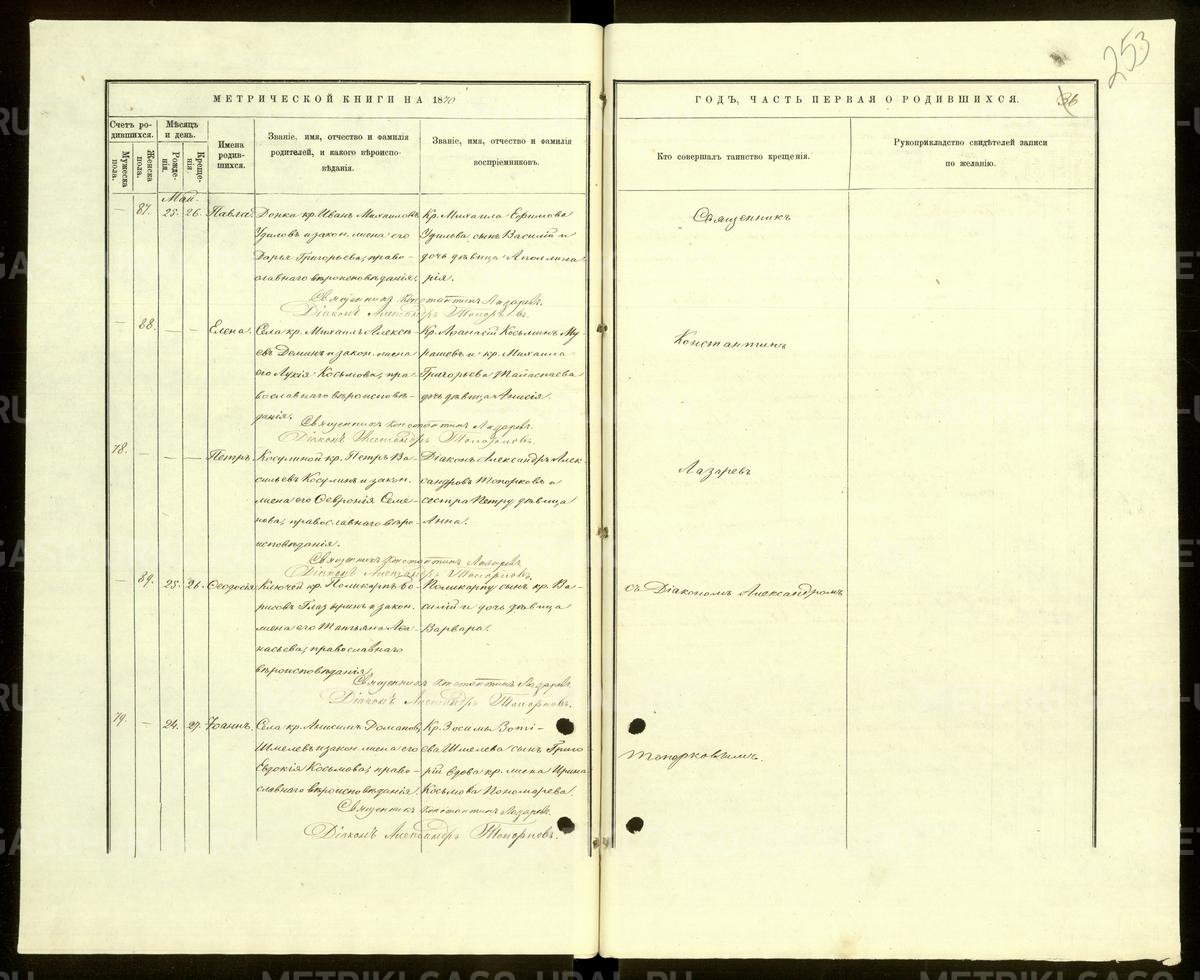 253
МЕТРИЧЕСКОЙ КНИГИ НА 1870
ГОДЪ, ЧАСТЬ ПЕРВАЯ О РОДИВШИХСЯ.
36
Счетъ родившихся.
Мужеска пола.
Женска пола.
Мѣсяцъ и день.
Рожденія.
Крещенія.
Имена родившихся.
Званіе, имя, отчество и фамилія
родителей, и какого вѣроиспо-
вѣданія.
Званіе, имя, отчество и фамилія
воспріемниковъ.
Кто совершалъ таинство крещенія.
Рукоприкладство свидѣтелей записи
по желанію.
Май.
— 87. 25. 26. Павла.
кр. Иванъ Михаиловъ
Удиловъ и закон. жена его
Дарья Григорьева, право-
славнаго вѣроисповѣданія.
Кр. Михаила Ефимова
Удилова сынъ Василій и
дочь дѣвица Аполлина-
рія.
Священникъ Константинъ Лазаревъ.
Діаконъ Александръ Топорковъ.
— 88. — — Елена.
Села кр. Михаилъ Алексѣ-
евъ Деминъ и закон. жена
его Лукія Косьмова, пра-
вославнаго вѣроисповѣ-
данія.
Кр. Афанасій Косьминъ
и кр. Михаила
Григорьева
дочь дѣвица Анисія.
Священникъ Константинъ Лазаревъ.
Діаконъ Александръ Топорковъ.
78. — — — Петръ.
кр. Петръ Ва-
сильевъ Косулинъ и закон.
жена его Февронія Семе-
нова, православнаго вѣро-
исповѣданія.
Діаконъ Александръ Алек-
сандровъ Топорковъ и
сестра Петру дѣвица
Анна.
Священникъ Константинъ Лазаревъ
Діаконъ Александръ Топорковъ.
— 89. 25. 26. Феодосія
Ключей кр. Поликарпъ Бо-
рисовъ Глазыринъ и закон.
жена его Татьяна Афа-
насьева, православнаго
вѣроисповѣданія.
Поликарпу сынъ кр. Ва-
силій и дочь дѣвица
Варвара.
Священникъ Константинъ Лазаревъ.
Діаконъ Александръ Топорковъ.
79. — 24. 27. Іоаннъ.
Села кр. Анисимъ
Шмелевъ и закон. жена его
Евдокія Косьмова, право-
славнаго вѣроисповѣданія.
Кр. Зосимы Зоті-
ева Шмелева сынъ Григо-
рій вдова кр. жена Ирина
Косьмова Пономарева.
Священникъ Константинъ Лазаревъ.
Діаконъ Александръ Топорковъ.
Священникъ
Константинъ
Лазаревъ
съ Діакономъ Александромъ
Топорковымъ.
METRIKI.GASO-URAL.RU